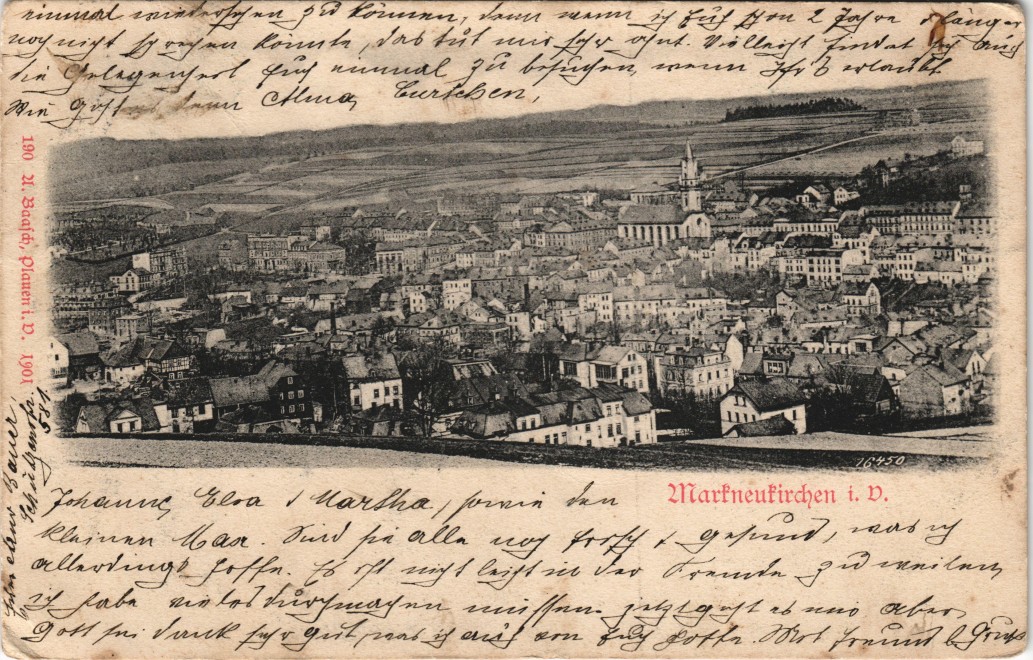 einmal wiedersehen zu können, denn wenn ich Euch schon 2 Jahre & länger
noch nicht sprechen könnte, das tut mir sehr ahnt. Vielleicht findet sich auch
die Gelegenheit Euch einmal zu besuchen, wenn Ihr's erlaubt
Wie geht es denn Alma, Curtchen,
190 U. Baasch, Plauen i. V. 1901
16450
Markneukirchen i. V.
Johanne, Elsa & Martha, sowie den
kleinen Max. Sind sie alle noch frisch & gesund, was ich
allerdings hoffe. Es ist nicht leicht in der Fremde zuweilen
ich habe vieles durchmachen müssen. jetzt geht es mir aber
Gott sei dank sehr gut, was ich auch von Euch hoffe. Mit freundl. Gruß
Bauer,
Schützenstr.
581.